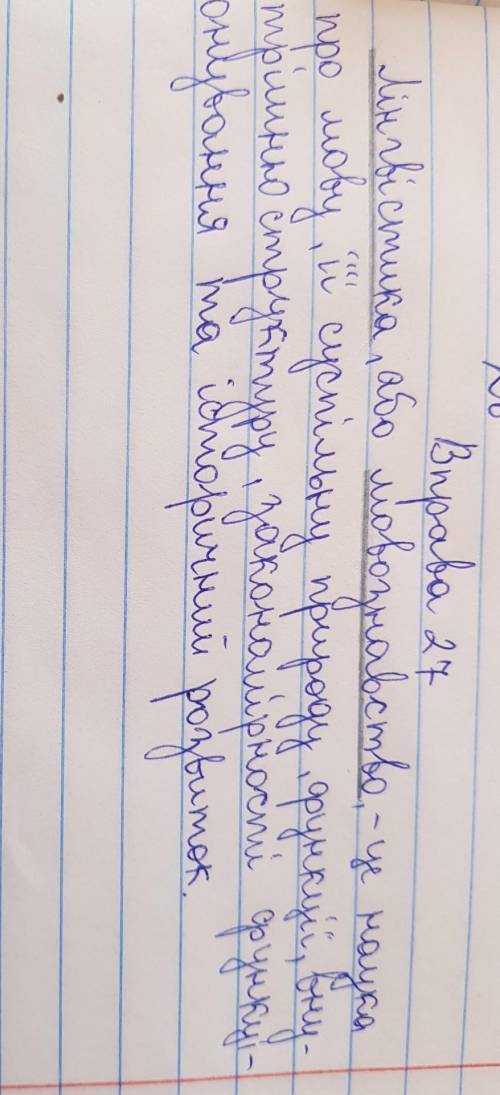 Вправа 27
Лінгвістика, або мовознавство, - це наука
про мову, її суспільну природу, функції, вну-
трішню структуру, закономірності функці-
онування та історичний розвиток.